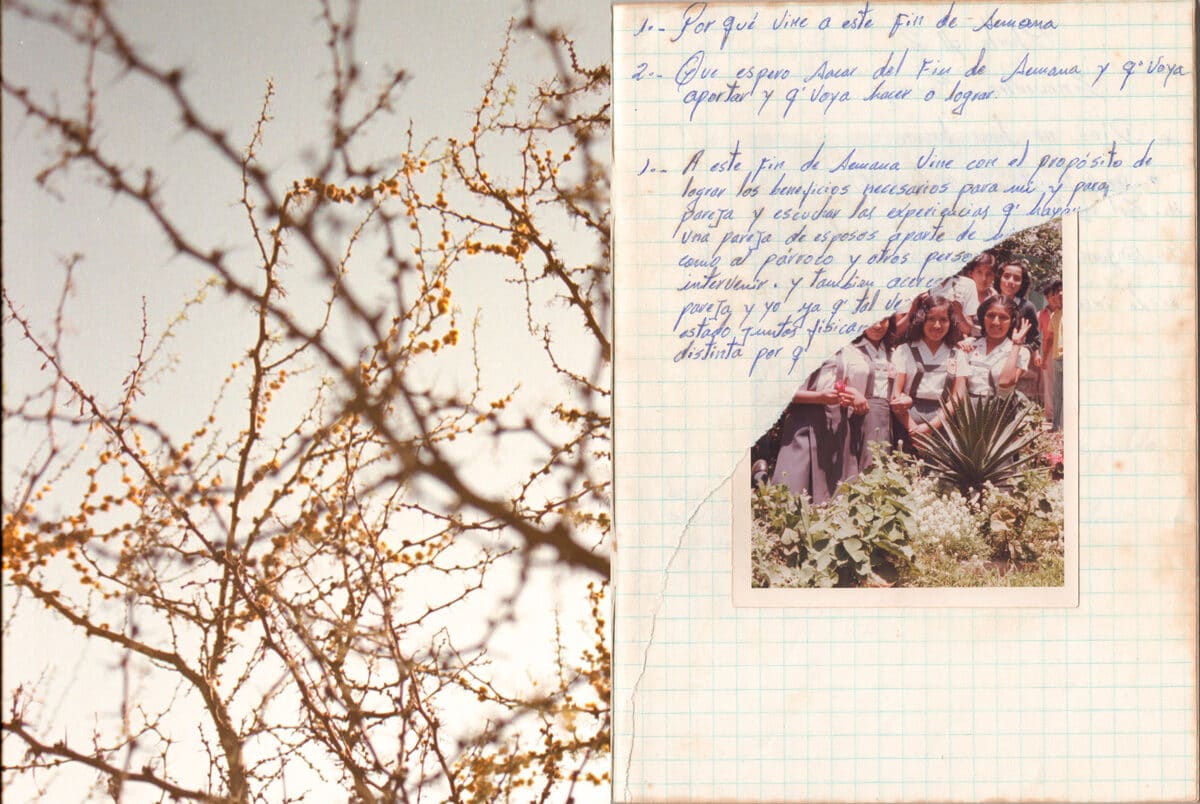 1.- Por qué vine a este Fin de Semana
2.- Que espero Sacar del Fin de Semana y q' voya
aportar y q' voya hacer o lograr.
1.- A este Fin de Semana Vine con el propósito de
lograr los beneficios necesarios para mi y para
pareja y escuchar las experiencias q' hayan
una pareja de esposos aparte de
como al párroco y otros perso
intervenir. y tambien acerca
pareja y yo ya q' tal ve
estado juntos fisicam
distinta por q'